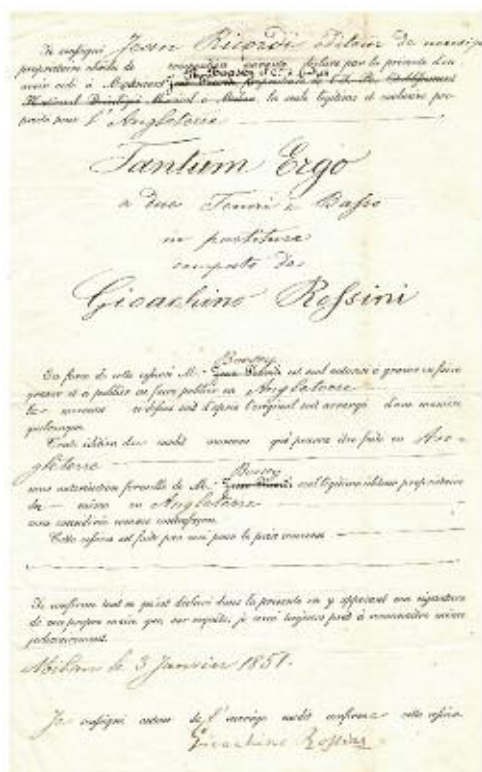 Je soussigné Jean Ricordi éditeur de musique
propriétaire déclare par la présente d'en
avoir cédé à la seule légitime et exclusive pro-
priété pour l'Angleterre
Tantum Ergo
a due Tenori e Basso
in partitura
composto da
Gioachino Rossini
En force de cette cession M.r Boosey est seul autorisé à graver ou faire
graver et à publier ou faire publier en Angleterre
quelconque.
Toute édition du morceau qui pourra être faite en An-
gleterre
sans autorisation formelle de M.r Boosey seul légitime éditeur propriétaire
du en Angleterre
sera considérée comme contrefaçon.
Cette cession est faite par moi pour le prix convenu
Je confirme tout ce qui est déclaré dans la présente en y apposant ma signature
de ma propre main que, sur requête, je serai toujours prêt à reconnaître même
judiciairement.
Milan le 3 Janvier 1851.
Je soussigné auteur de l'ouvrage susdit confirme cette cession
Gioachino Rossini